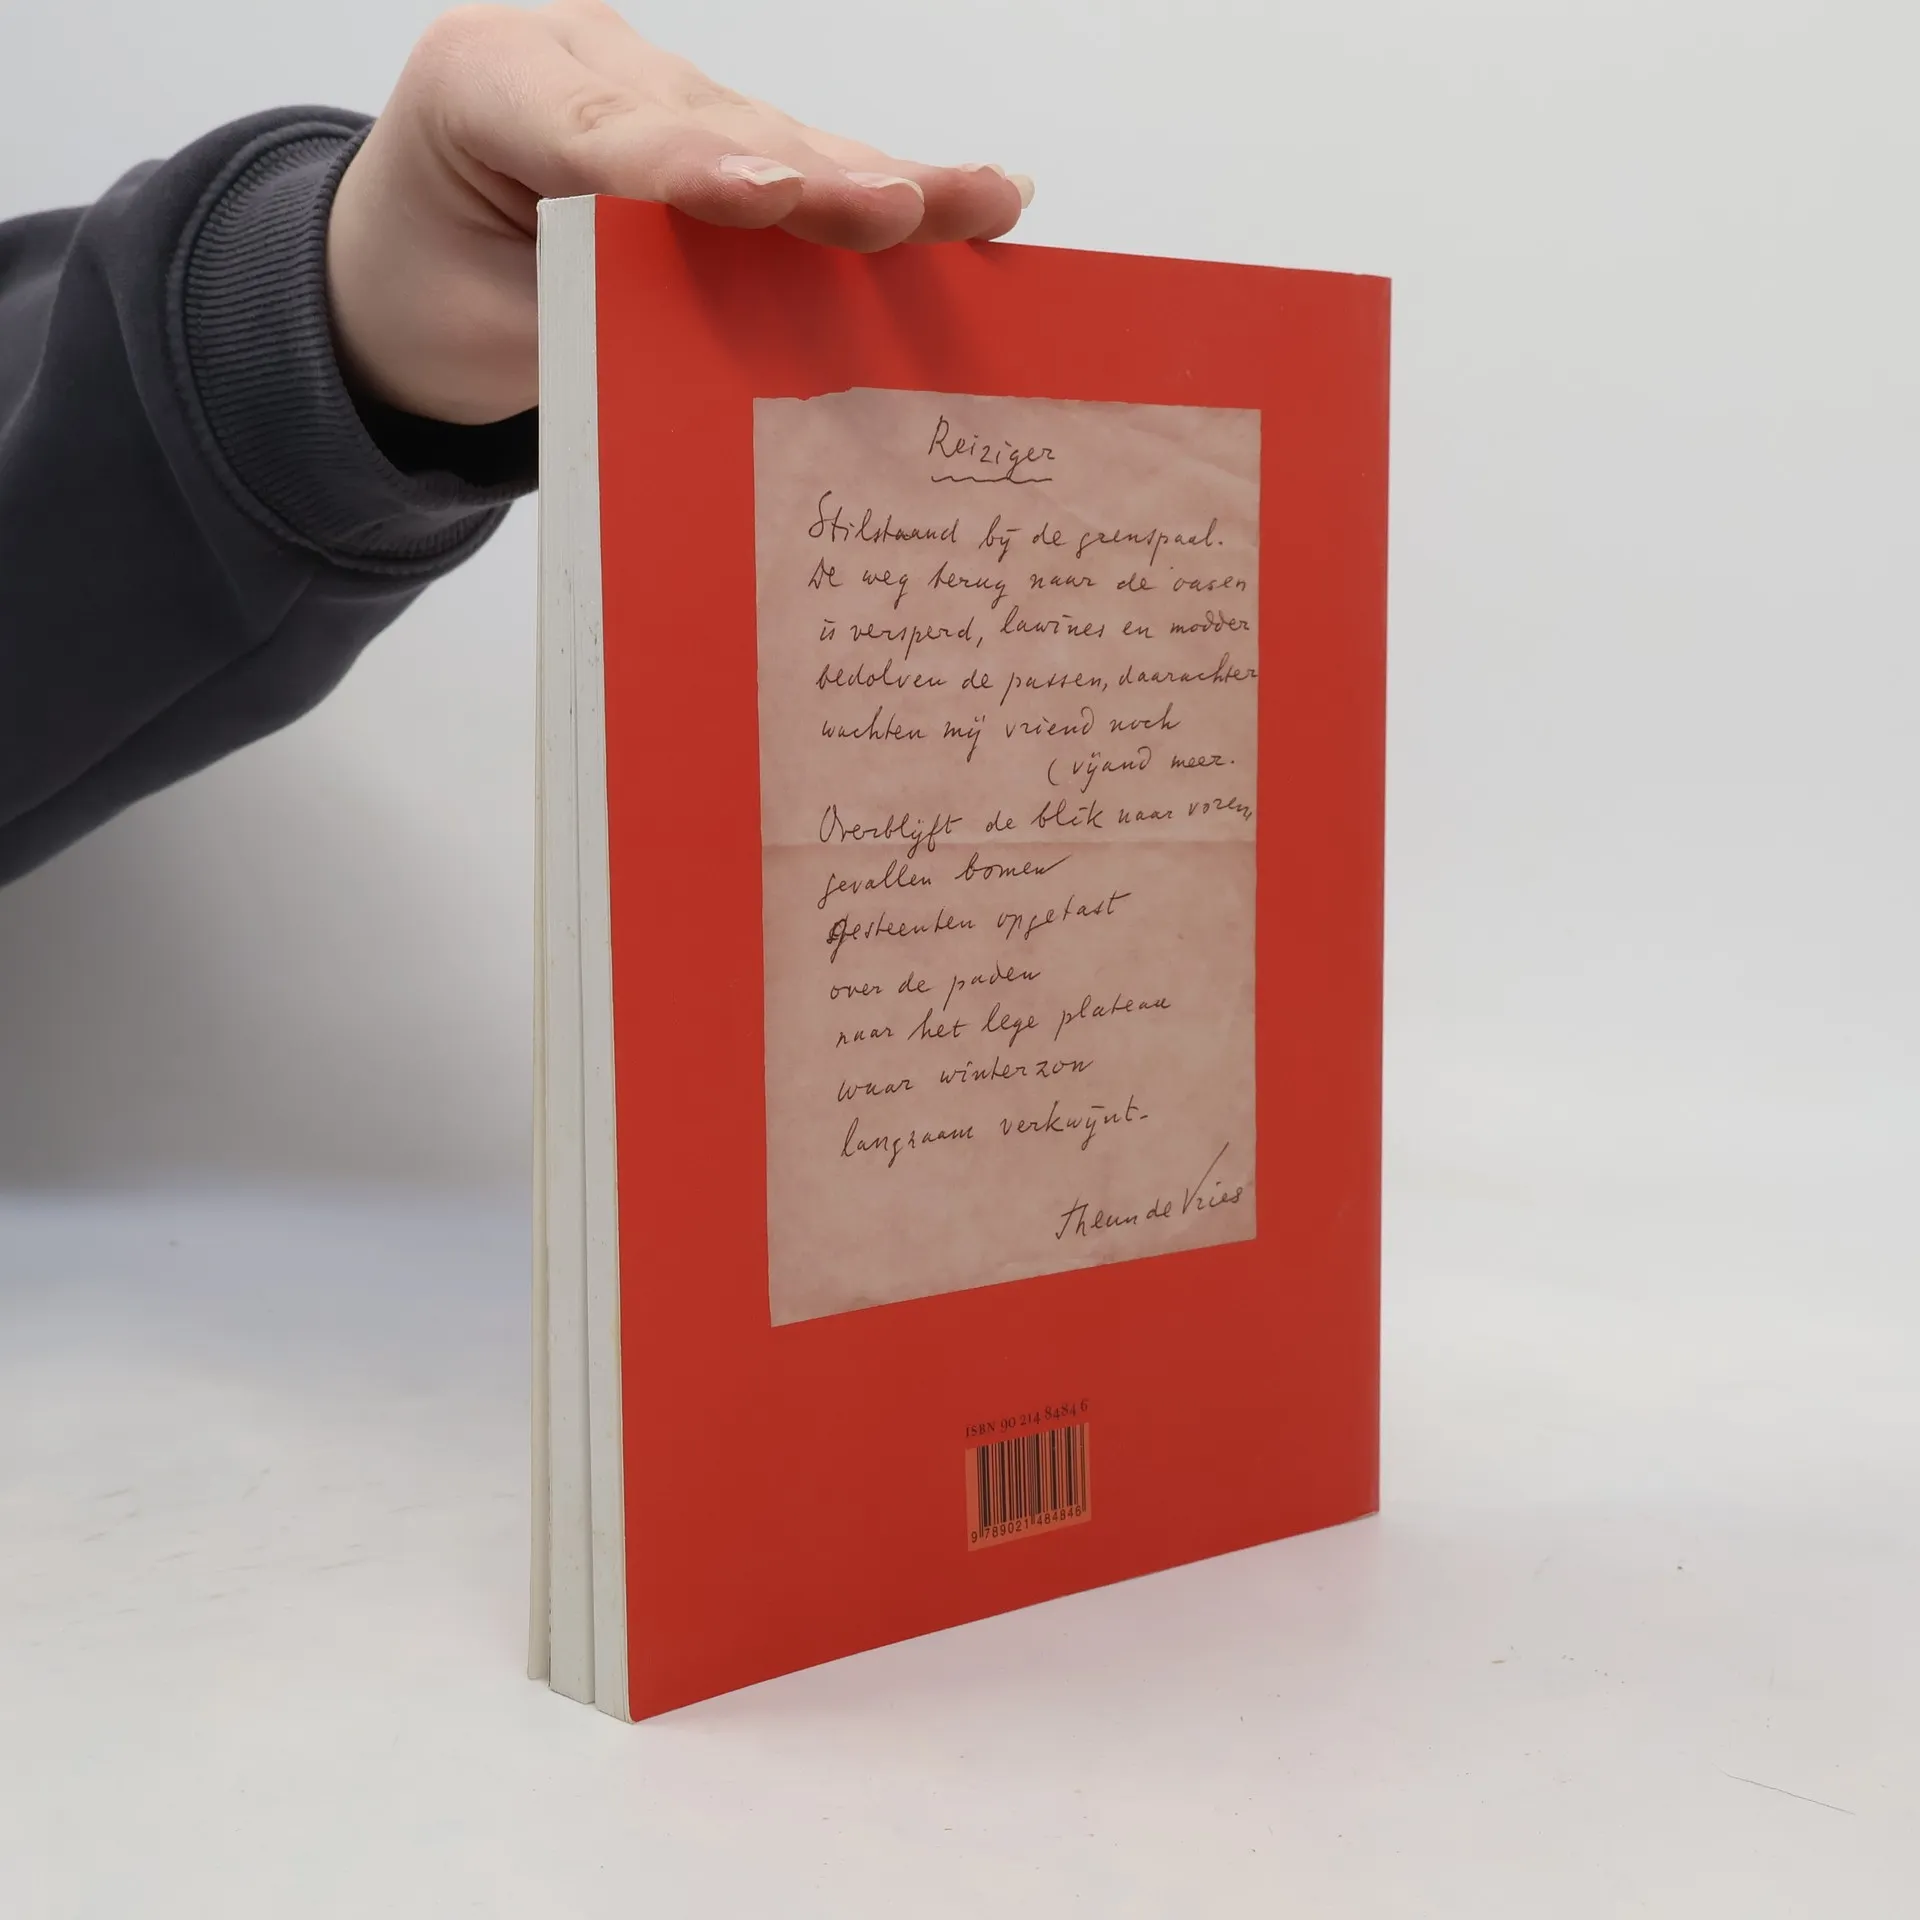 Reiziger
Stilstaand bij de grenspaal.
De weg terug naar de oasen
is versperd, lawines en modder
bedolven de passen, daarachter
wachten mij vriend noch
(vijand meer.
Overblijft de blik naar voren,
gevallen bomen
gesteenten opgetast
over de paden
naar het lege plateau
waar winterzon
langzaam verkwijnt-
Theun de Vries
ISBN 90 214 8484 6
9 789021 484846